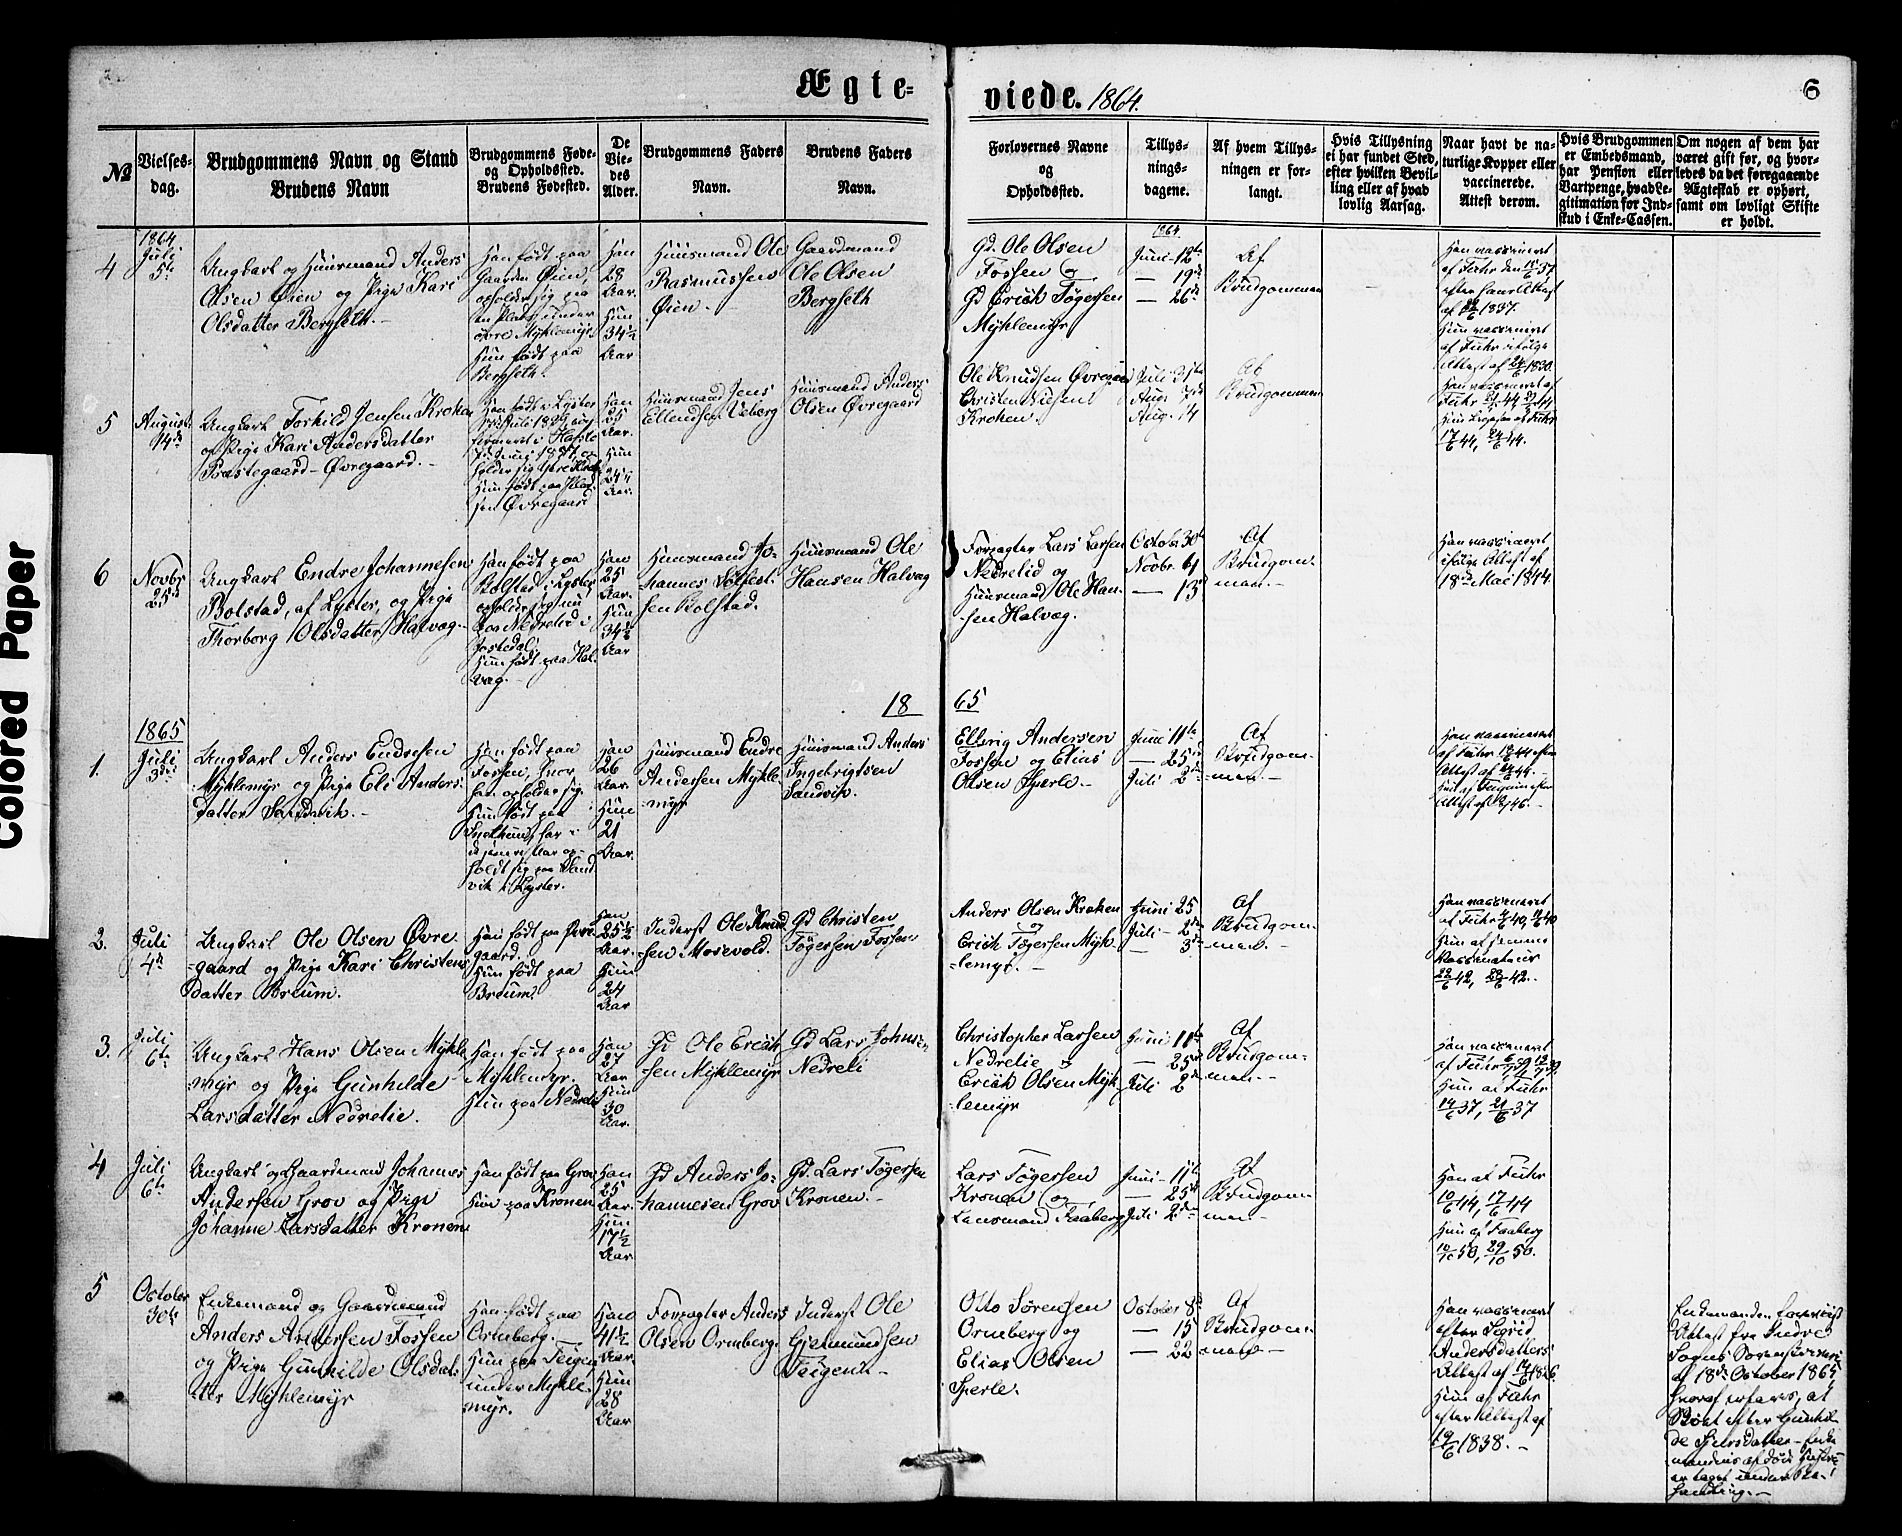 Ægte-
viede. 1864.
6
№
Vielses-
dag.
Brudgommens Navn og Stand
Brudens Navn
Brudgommens Føde-
og Opholdssted.
Brudens Fødested.
De
Vie-
des
Alder.
Brudgommens Faders
Navn.
Brudens Faders
Navn.
Forlovernes Navne
og
Opholdssted.
Tillys-
nings-
dagene.
Af hvem Tillys-
ningen er for-
langt.
Hvis Tillysning
ei har fundet Sted,
efter hvilken Bevil-
ling eller af hvad
lovlig Aarsag.
Naar havt de na-
turlige Kopper eller
vaccinerede.
Attest derom.
Hvis Brudgommen
er Embedsmand,
har Pension eller
Vartpenge, hvad Le-
gitimation for Ind-
skud i Enke-Cassen.
Om nogen af dem har
været gift før, og hvor-
ledes da det foregaaende
Ægteskab er ophørt,
samt om lovligt Skifte
er holdt.
4
1864
Juli
5te
Ungkarl og Huusmand Anders
Olsen Øien og Pige Kari
Olsdatter Bergseth.
Han født paa
Gaarden Øien,
opholder sig paa
en Plads under
øvre Myklemyr.
Hun født paa
Bergseth.
Han
28
Aar.
Hun
34½
Aar
Huusmand Ole
Rasmussen
Øien.
Gaardmand
Ole Olsen
Bergseth
Gd. Ole Olsen
Fossen og
Gd Erich Tøgersen
Myklemyr
1864
Juni 12te
— 19de
— 26de
Af
Brudgommen
Han vaccineret
af Fuhr den
efter hans Attest
af 1837.
Hun vaccineret
af Fuhr ifølge
Attest af 1830.
5
August
14de
Ungkarl Torkild Jensen Kroken
og Pige Kari Andersdatter
Præstegaard-Øvregaard.
Han født i Lyster
Hun født paa
Øvregaard
Han
25
Aar.
Hun
24½
Aar.
Huusmand Jens
Ellendsen Ueberg
Huusmand Anders
Olsen Øvregaard
Ole Knudsen Øvregaard
Kroken.
Juli 31te
Aug 7de
Aug. 14
Af
Brudgommen
Han vaccineret af
Fuhr
6
Novbr
25de
Ungkarl Endre Johannesen
Bolstad, af Lyster, og Pige
Thorborg Olsdatter Halvag.
Han født paa
Bolstad i Lyster
opholder sig nu
paa Nedrelid i
Jostedal.
Hun født paa Hal-
vag.
Han
25
Aar.
Hun
34½
Aar
Huusmand Jo-
hannes
sen Bolstad.
Huusmand Ole
Hansen Halvag
Forpagter Lars Larsen
Nedrelid og
Huusmand Ole Han-
sen Halvag.
October 30te
Novbr. 6
— 13
Af
Brudgom-
men.
Han vaccineret
ifølge Attest af
18de Mai 1844.
18 65
1.
1865
Juli
3die
Ungkarl Anders Endresen
Myklemyr og Pige Eli Anders-
datter Sandvik.
Han født paa
Fossen, hvor
han opholder sig.
Hun født paa
i de senere Aar op-
holdt sig paa Sand-
vik i Lyster.
Han
26
Aar.
Hun
21
Aar.
Huusmand Endre
Andersen Mykle-
myr
Huusmand Anders
Ingebrigtsen
Sandvik.
Ellvig Andersen
Fossen og Elias
Olsen Sperle
Juni 11te
— 25de
Juli 2den
Af
Brudgom-
men.
Han vaccineret
af Fuhr
2.
Juli
4de
Ungkarl Ole Olsen Øvre-
gaard og Pige Kari Christens-
datter Breum.
Han født paa Øvre-
gaard.
Hun født paa
Breum.
Han
25½
Aar.
Hun
24
Aar.
Inderst Ole Knud-
sen Morevold.
Gd Christen
Tøgersen Fossen
Anders Olsen Kroken
og
Erich Tøgersen Myk-
lemyr.
Juni 25
Juli 2den
— 3die
Af
Brudgom-
men.
Han vaccineret
af Fuhr
Hun af samme
Vaccinateur
3.
Juli
6te
Ungkarl Hans Olsen Mykle-
myr og Pige Gunhilde
Larsdatter Nedrelie.
Han født paa
Myklemyr.
Hun paa Nedreli
Han
27
Aar
Hun
30
Aar.
Gd Ole Erich-
sen Myklemyr
Gd Lars Johnsen
Nedreli
Christopher Larsen
Nedrelie og
Erich Olsen Myk-
lemyr
Juni 11te
— 25de
Juli 2den
Af
Brudgom-
men.
Han vaccineret
af Fuhr
Hun af Fuhr
14/6 37, 21/6 37
4
Juli
6te
Ungkarl og Gaardmand Johannes
Andersen Grov og Pige
Johanne Larsdatter Kronen
Han født paa Grov
Hun paa Kronen
Han
25
Aar.
Hun
17½
Aar
Gd Anders Jo-
hannesen Grov
Gd. Lars Tøgersen
Kronen.
Lars Tøgersen
Kronen og
Lensmand Faaberg
Juni 11te
— 25de
Juli 2den
Af
Brudgom-
men.
Han af Fuhr
10/6 44, 17/6 44
Hun af Faaberg
50, 29/10 50.
5
October
30te
Enkemand og Gaardmand
Anders Andersen Fossen
og Pige Gunhilde Olsdat-
ter Myklemyr
Han født paa
Ormberg.
Hun paa Teigen
under Mykle-
myr.
Han
41½
Aar.
Hun
28
Aar
Forpagter Anders
Olsen Ormberg.
Inderst Ole
Gjelmundsen
Teigen
Otto Sørensen
Ormberg og
Elias Olsen
Sperle.
October 8de
— 15
— 22
Af
Brudgom-
men
Han vaccineret
efter Sigrid
Andersdatters
Attest af 1826.
Hun af Fuhr
efter Attest af
19/6 1838.
Enkemanden foreviist
Attest fra Indre
Sogns Sorenskriveri
af 18de October 1865,
hvoraf erfares, at
Boet efter Gunhil-
de datter – Enke-
mandens afdøde Hustru
er taget under Be-
handling.
Colored Paper